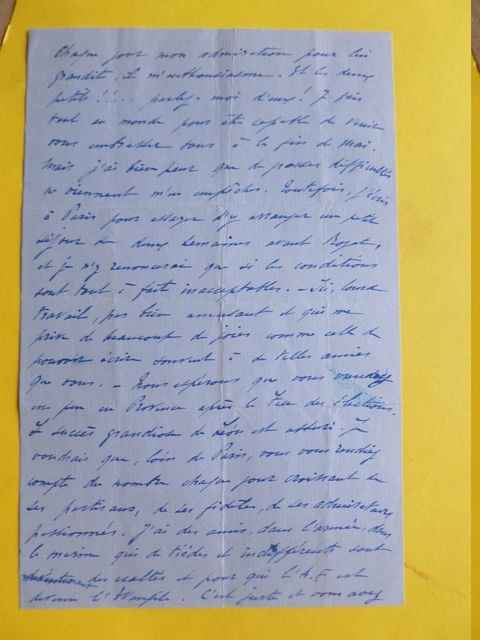 Chaque jour mon admiration pour lui
grandit, il m'enthousiasme. Et les deux
petits !!... parlez-moi d'eux ! Je fais
tout au monde pour être capable de venir
vous embrasser tous à la fin de mai.
Mais j'ai bien peur que de grosses difficultés
ne viennent m'en empêcher. Toutefois, j'écris
à Paris pour essayer d'y arranger un petit
séjour de deux semaines avant Royat,
et je n'y renoncerai que si les conditions
sont tout à fait inacceptables. – Ici, lourd
travail, pas bien amusant et qui me
prive de beaucoup de joies comme celle de
pouvoir écrire souvent à de telles amies
que vous. – Nous espérons que vous viendrez
un peu en Provence après le feu des élections.
Le succès grandiose de Léon est assuré. Je
voudrais que, loin de Paris, vous vous rendiez
compte du nombre chaque jour croissant de
ses partisans, de ses fidèles, de ses admirateurs
passionnés. J'ai des amis, dans l'armée, dans
la marine qui de tièdes et indifférents sont
des exaltés et pour qui l'A.F. est
devenue l'Evangile. C'est juste et vous avez